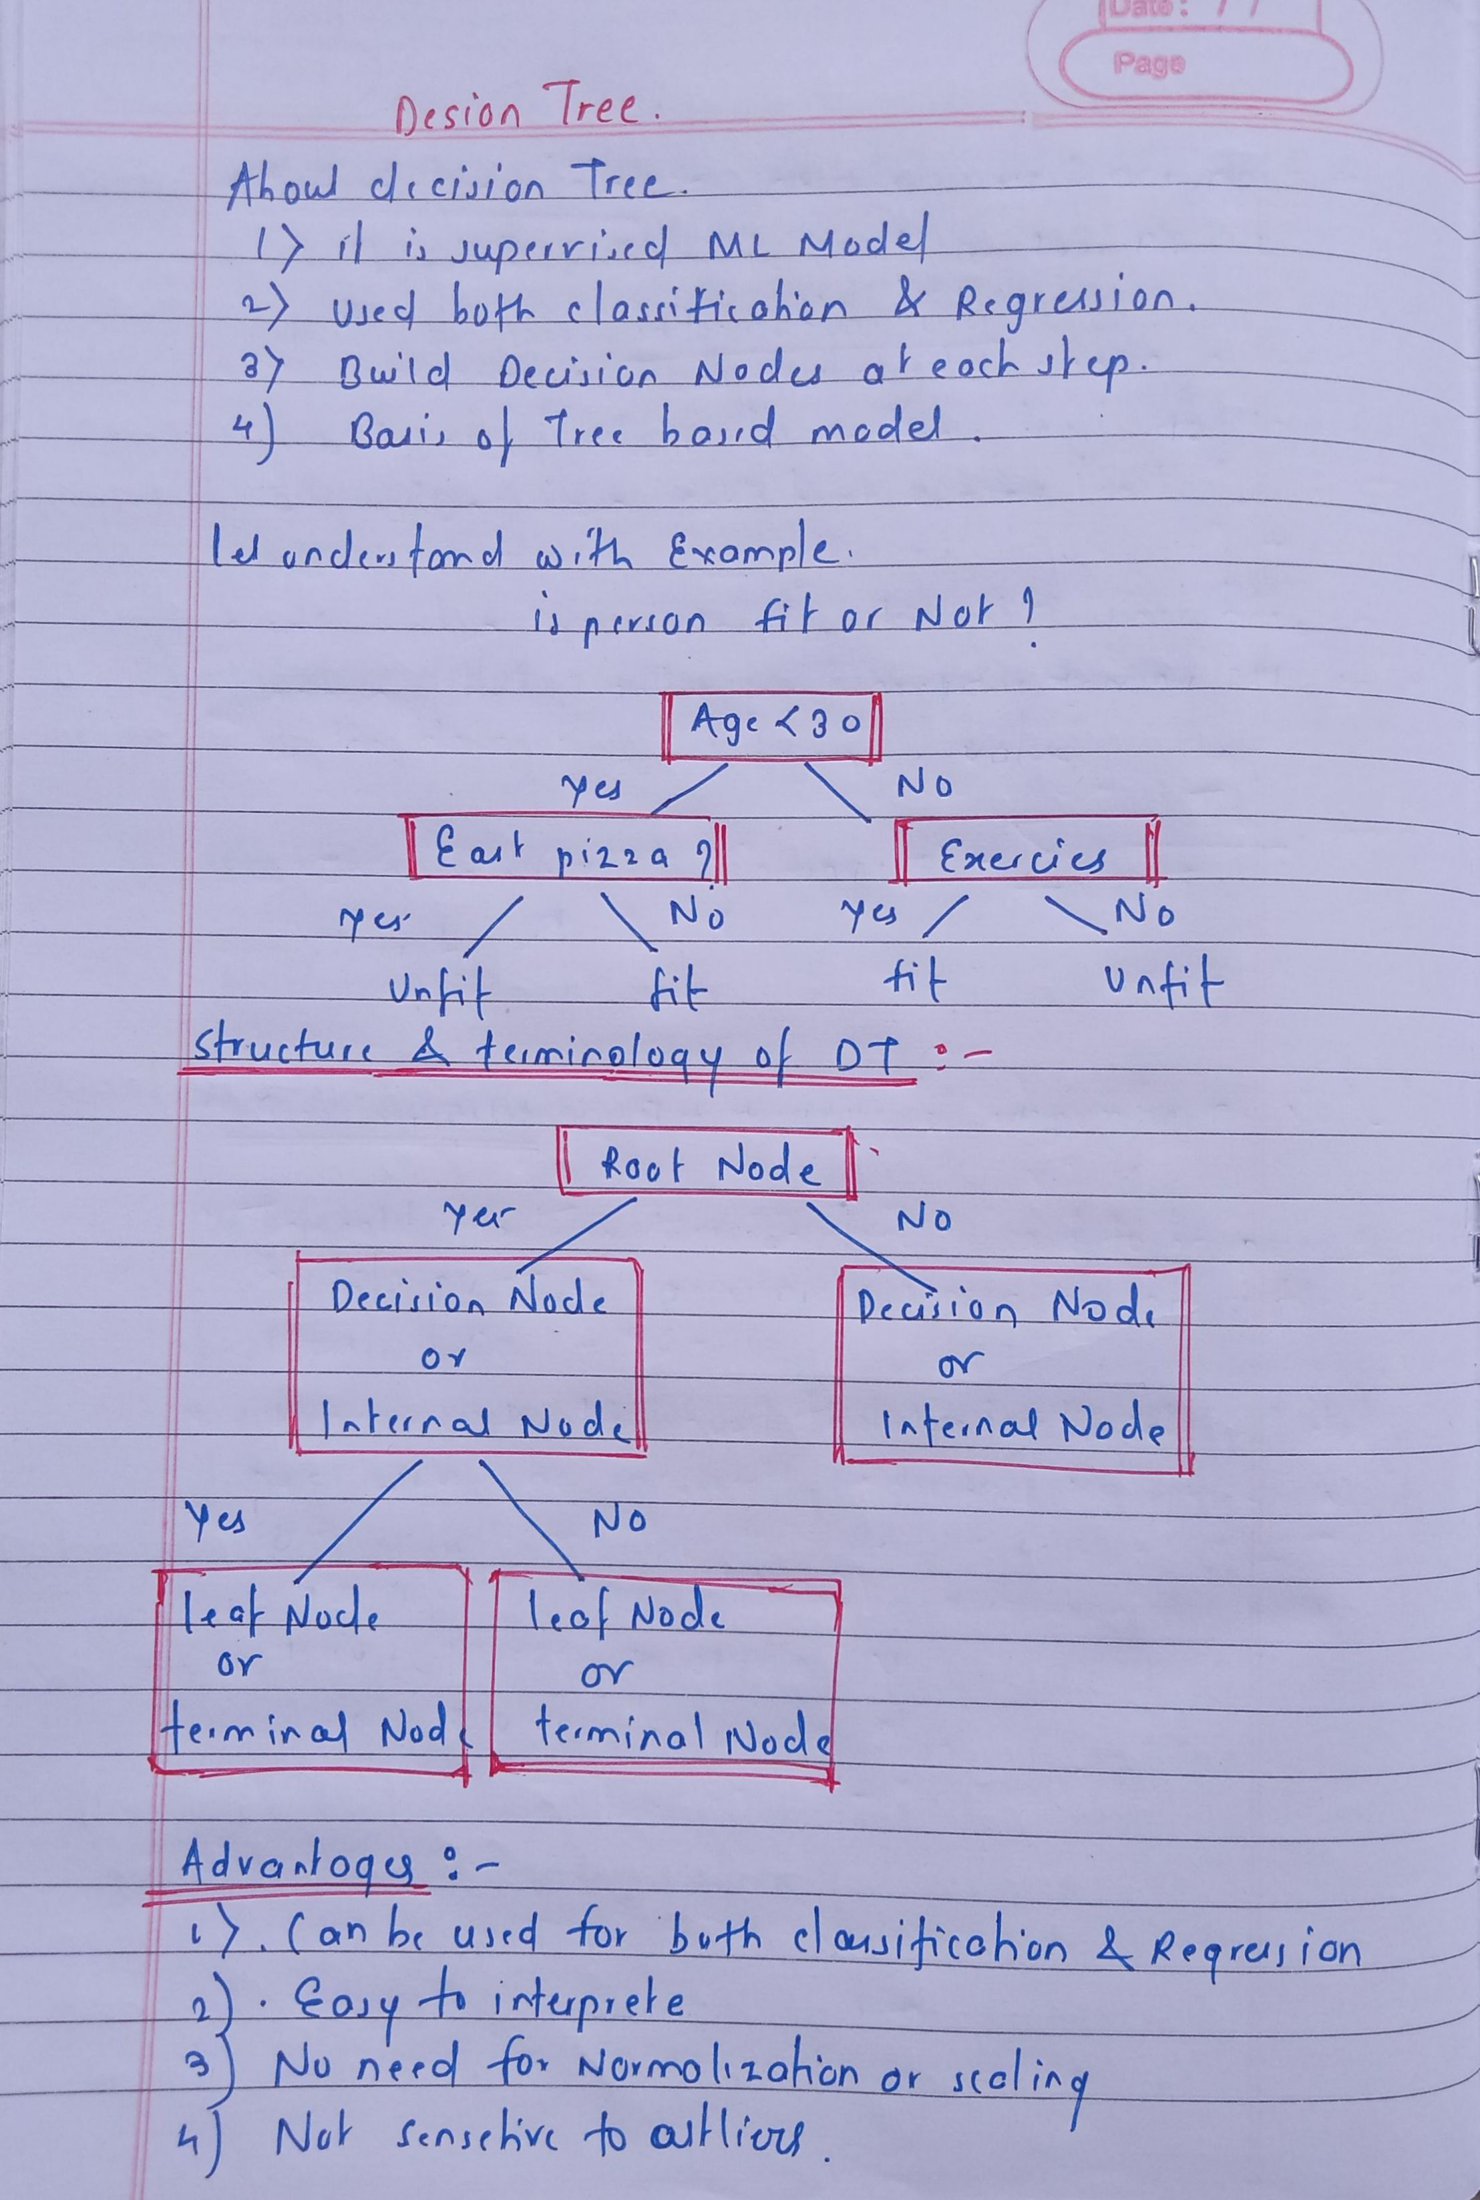 Date: / /
Page
Desion Tree.
About decision Tree.
1) it is supervised ML Model
2) Used both classification & Regression.
3) Build Decision Nodes at each step.
4) Basis of Tree based model.
let understand with Example.
is person fit or Not ?
Age < 30
Yes No
Eart pizza ? Exercies
Yes No Yes No
Unfit fit fit Unfit
structure & terminology of DT :-
Root Node
Yes No
Decision Node Decision Node
or or
Internal Node Internal Node
Yes No
leaf Node leaf Node
or or
terminal Node terminal Node
Advantages :-
1). Can be used for both classification & Regression
2). Easy to interprete
3) No need for Normalization or scaling
4) Not sensetive to outliers.